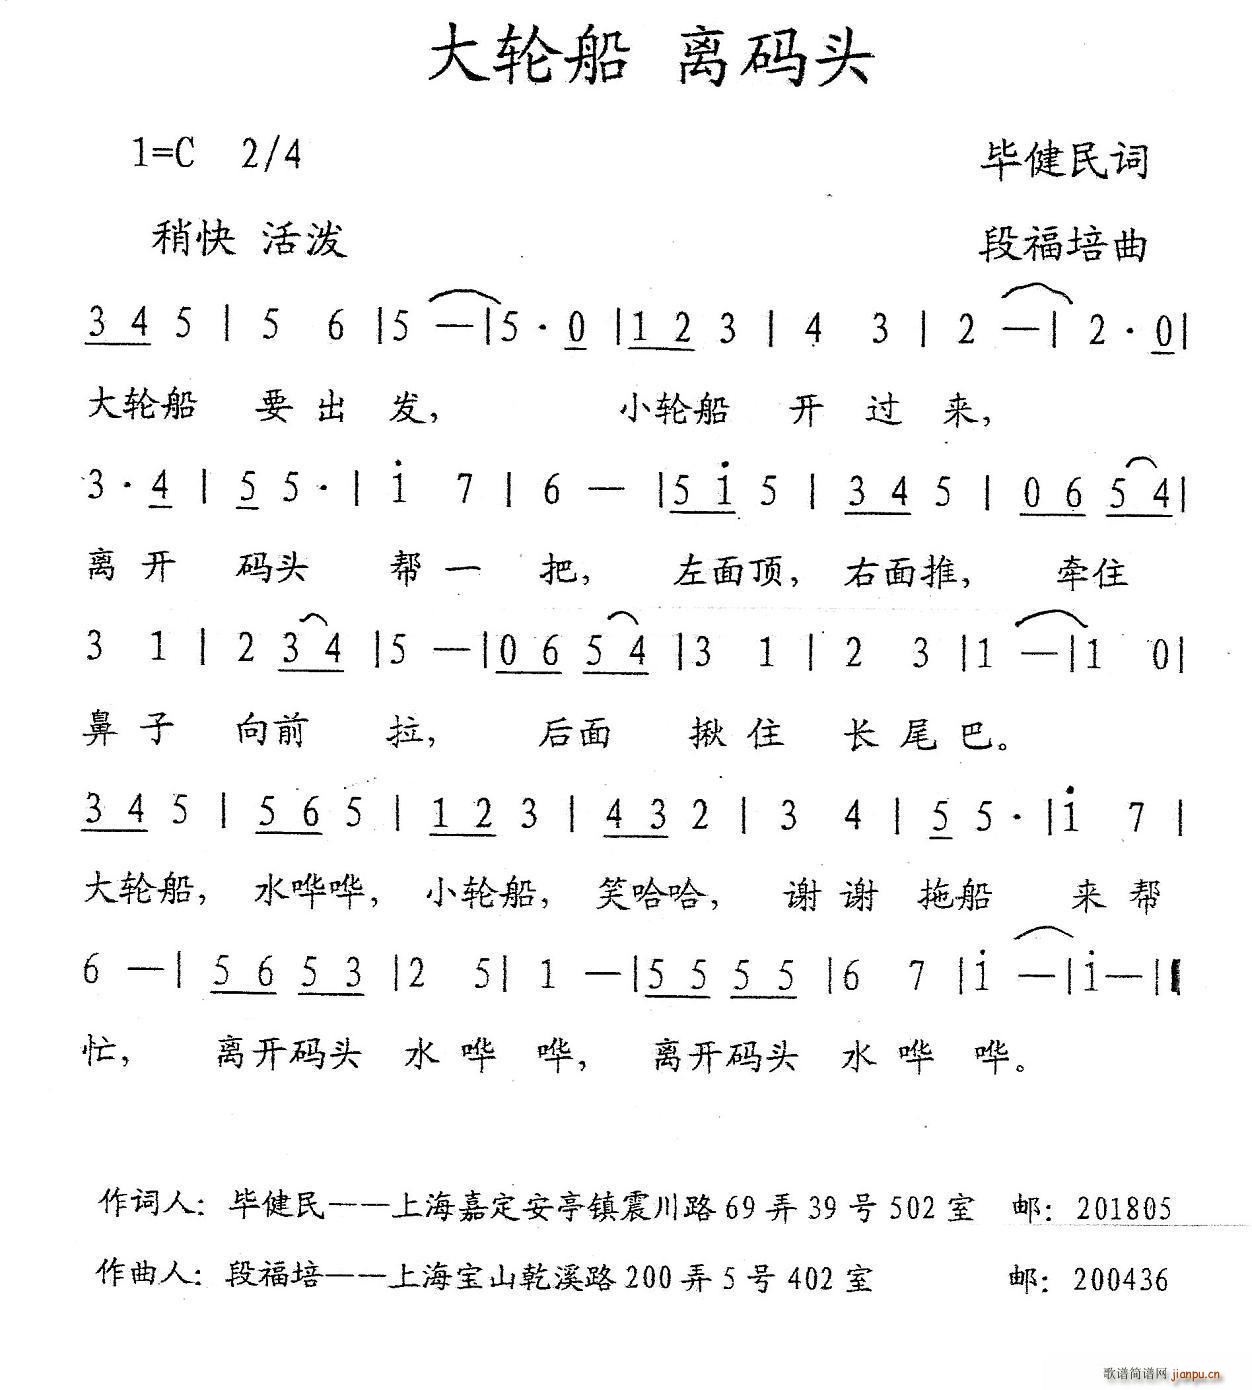 大轮船 离码头
1=C 2/4
毕健民词
稍快 活泼
段福培曲
3 4 5 | 5 6 | 5 — | 5 · 0 | 1 2 3 | 4 3 | 2 — | 2 · 0 |
大轮船 要出发, 小轮船 开过来,
3 · 4 | 5 5 · | i 7 | 6 — | 5 i 5 | 3 4 5 | 0 6 5 4 |
离开 码头 帮一把, 左面顶, 右面推, 牵住
3 1 | 2 3 4 | 5 — | 0 6 5 4 | 3 1 | 2 3 | 1 — | 1 0 |
鼻子 向前 拉, 后面 揪住 长尾巴。
3 4 5 | 5 6 5 | 1 2 3 | 4 3 2 | 3 4 | 5 5 · | i 7 |
大轮船, 水哗哗, 小轮船, 笑哈哈, 谢谢 拖船 来帮
6 — | 5 6 5 3 | 2 5 | 1 — | 5 5 5 5 | 6 7 | i — | i — ‖
忙, 离开码头 水哗哗, 离开码头 水哗哗。
作词人: 毕健民——上海嘉定安亭镇震川路69弄39号502室 邮: 201805
作曲人: 段福培——上海宝山乾溪路200弄5号402室 邮: 200436
歌谱简谱网 jianpu.cn